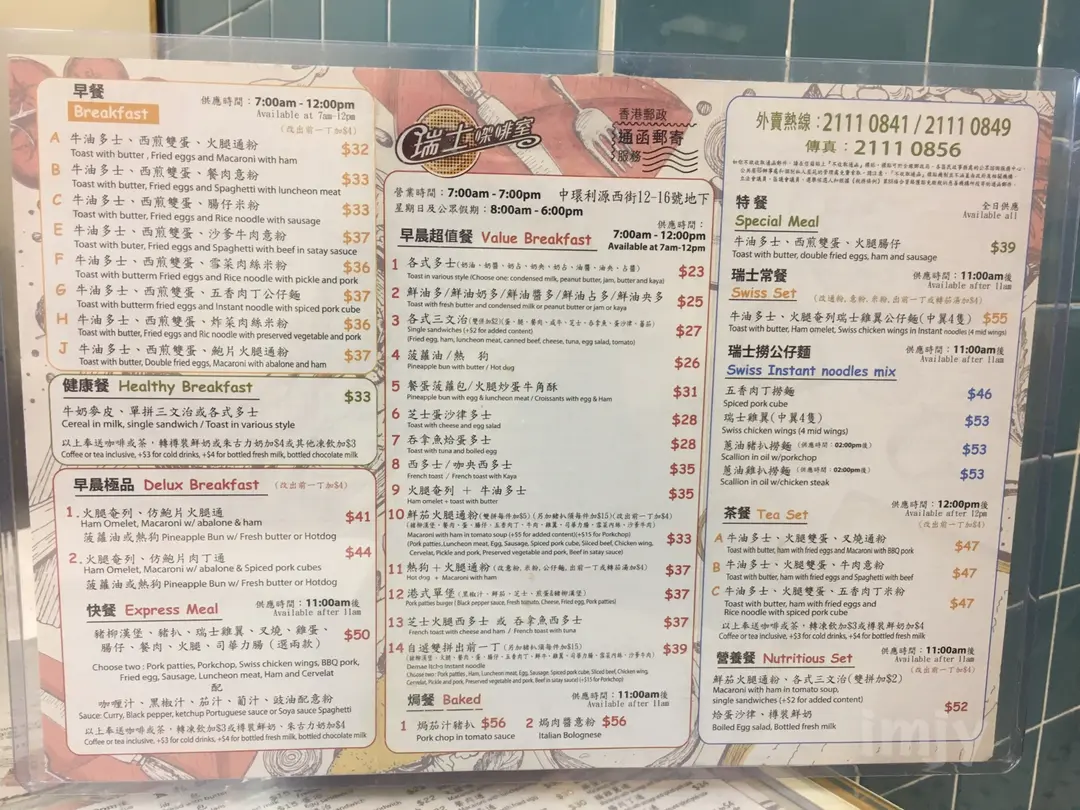 早餐
Breakfast
供應時間：7:00am - 12:00pm
Available at 7am-12pm
(改出前一丁加$4)
A 牛油多士、西煎雙蛋、火腿通粉 $32
Toast with butter , Fried eggs and Macaroni with ham
B 牛油多士、西煎雙蛋、餐肉意粉 $33
Toast with butter, Fried eggs and Spaghetti with luncheon meat
C 牛油多士、西煎雙蛋、腸仔米粉 $33
Toast with butter, Fried eggs and Rice noodle with sausage
E 牛油多士、西煎雙蛋、沙爹牛肉意粉 $37
Toast with buter, Fried eggs and Spaghetti with beef in satay sasuce
F 牛油多士、西煎雙蛋、雪菜肉絲米粉 $36
Toast with butterm Fried eggs and Rice noodle with pickle and pork
G 牛油多士、西煎雙蛋、五香肉丁公仔麵 $37
Toast with butterm fried eggs and Instant noodle with spiced pork cube
H 牛油多士、西煎雙蛋、炸菜肉絲米粉 $36
Toast with butter, Fried eggs and Ric noodle with preserved vegetable and pork
J 牛油多士、西煎雙蛋、鮑片火腿通粉 $37
Toast with butter, Double fried eggs, Macaroni with abalone and ham
健康餐 Healthy Breakfast $33
牛奶麥皮、單拼三文治或各式多士
Cereal in milk, single sandwich / Toast in various style
以上奉送咖啡或茶，轉樽裝鮮奶或朱古力奶加$4或其他凍飲加$3
Coffee or tea inclusive, +$3 for cold drinks, +$4 for bottled fresh milk, bottled chocolate milk
早晨極品 Delux Breakfast (改出前一丁加$4)
1. 火腿奄列、仿鮑片火腿通 $41
Ham Omelet, Macaroni w/ abalone & ham
菠蘿油或熱狗 Pineapple Bun w/ Fresh butter or Hotdog
2. 火腿奄列、仿鮑片肉丁通 $44
Ham Omelet, Macaroni w/ abalone & Spiced pork cubes
菠蘿油或熱狗 Pineapple Bun w/ Fresh butter or Hotdog
快餐 Express Meal
供應時間：11:00am後
Available after 11am
豬柳漢堡、豬扒、瑞士雞翼、叉燒、雞蛋、 $50
腸仔、餐肉、火腿、司華力腸 (選兩款)
Choose two : Pork patties, Porkchop, Swiss chicken wings, BBQ pork,
Fried egg, Sausage, Luncheon meat, Ham and Cervelat
配
咖喱汁、黑椒汁、茄汁、葡汁、豉油配意粉
Sauce: Curry, Black pepper, ketchup Portuguese sauce or Soya sauce Spaghetti
以上奉送咖啡或茶，轉凍飲加$3或樽裝鮮奶、朱古力奶加$4
Coffee or tea inclusive, +$3 for cold drinks, +$4 for bottled fresh milk, bottled chocolate milk
瑞士咖啡室
香港郵政
通函郵寄
服務
營業時間：7:00am - 7:00pm 中環利源西街12-16號地下
星期日及公眾假期：8:00am - 6:00pm
早晨超值餐 Value Breakfast
供應時間：
7:00am - 12:00pm
Available at 7am-12pm
1 各式多士(奶油、奶醬、奶占、奶央、奶占、油醬、油央、占醬) $23
Toast in various style (Choose one: condensed milk, peanut butter, jam, butter and kaya)
2 鮮油多/鮮油奶多/鮮油醬多/鮮油占多/鮮油央多 $25
Toast with fresh butter and condensed milk or peanut butter or jam or kaya
3 各式三文治(雙拼加$2)(蛋、腿、餐肉、咸牛、芝士、吞拿魚、蛋沙律、蕃茄) $27
Single sandwiches (+$2 for added content)
(Fried egg, ham, luncheon meat, canned beef, cheese, tuna, egg salad, tomato)
4 菠蘿油/熱 狗 $26
Pineapple bun with butter / Hot dug
5 餐蛋菠蘿包/火腿炒蛋牛角酥 $31
Pineapple bun with egg & luncheon meat / Croissants with egg & Ham
6 芝士蛋沙律多士 $28
Toast with cheese and egg salad
7 吞拿魚烚蛋多士 $28
Toast with tuna and boiled egg
8 西多士/咖央西多士 $35
French toast / French toast with Kaya
9 火腿奄列 ＋ 牛油多士 $35
Ham omelet + toast with butter
10 鮮茄火腿通粉(雙拼每件加$5)(另加豬扒須每件加$15)(改出前一丁加$4) $33
Macaroni with ham in tomato soup (+$5 for added content)(+$15 for Porkchop)
(Pork patties,Luncheon meat, Egg, Sausage, Spiced pork cube, Sliced beef, Chicken wing,
Cervelat, Pickle and pork, Preserved vegetable and pork, Beef in satay sauce)
11 熱狗＋火腿通粉(改意粉,米粉,公仔麵,出前一丁或轉茄湯加$4) $37
Hot dog + Macaroni with ham
12 港式單堡 (黑椒汁、鮮茄、芝士、煎蛋&豬柳漢堡) $37
Pork patties burger ( Black pepper sauce, fresh tomato, Cheese, Fried egg, Pork patties)
13 芝士火腿西多士 或 吞拿魚西多士 $37
French toast with cheese and ham / French toast with tuna
14 自選雙拼出前一丁 (另加豬扒須每件加$15) $39
Demae Itcho Instant noodle
Choose two: Pork patties, Ham, Luncheon meat, Egg, Sausage, Spiced pork cube, Sliced beef, Chicken wing,
Cervelat, Pickle and pork, Preserved vegetable and pork, Beef in satay sauce) (+$15 for Porkchop)
焗餐 Baked
供應時間：11:00am後
Available after 11am
1 焗茄汁豬扒 $56 2 焗肉醬意粉 $56
Pork chop in tomato sauce Italian Bolognese
外賣熱線：2111 0841 / 2111 0849
傳真：2111 0856
特餐
Special Meal
全日供應
Available all
牛油多士、西煎雙蛋、火腿腸仔 $39
Toast with butter, double fried eggs, ham and sausage
瑞士常餐
Swiss Set
供應時間：11:00am後
Available after 11am
(改通粉,意粉,米粉,出前一丁或轉茄湯加$4)
牛油多士、火腿奄列瑞士雞翼公仔麵(中翼4隻) $55
Toast with butter, Ham omelet, Swiss chicken wings in Instant noodles (4 mid wings)
瑞士撈公仔麵
Swiss Instant noodles mix
供應時間：11:00am後
Available after 11am
五香肉丁撈麵 $46
Spiced pork cube
瑞士雞翼(中翼4隻) $53
Swiss chicken wings (4 mid wings)
蔥油豬扒撈麵 (供應時間：02:00pm後) $53
Scallion in oil w/porkchop
蔥油雞扒撈麵 (供應時間：02:00pm後) $53
Scallion in oil w/chicken steak
茶餐 Tea Set
供應時間：12:00pm後
Available after 12pm
(改出前一丁加$4)
A 牛油多士、火腿雙蛋、叉燒通粉 $47
Toast with butter, ham with fried eggs and Macaroni with BBQ pork
B 牛油多士、火腿雙蛋、牛肉意粉 $47
Toast with butter, ham with fried eggs and Spaghetti with beef
C 牛油多士、火腿雙蛋、五香肉丁米粉 $47
Toast with butter, ham with fried eggs and
Rice noodle with spiced pork cube
以上奉送咖啡或茶，轉凍飲加$3或樽裝鮮奶加$4
Coffee or tea inclusive, +$3 for cold drinks, +$4 for bottled fresh milk
營養餐 Nutritious Set
供應時間：11:00am後
Available after 11am
(改出前一丁加$4)
鮮茄火腿通粉、各式三文治(雙拼加$2)
Macaroni with ham in tomato soup,
single sandwiches (+$2 for added content)
烚蛋沙律、樽裝鮮奶 $52
Boiled Egg salad, Bottled fresh milk